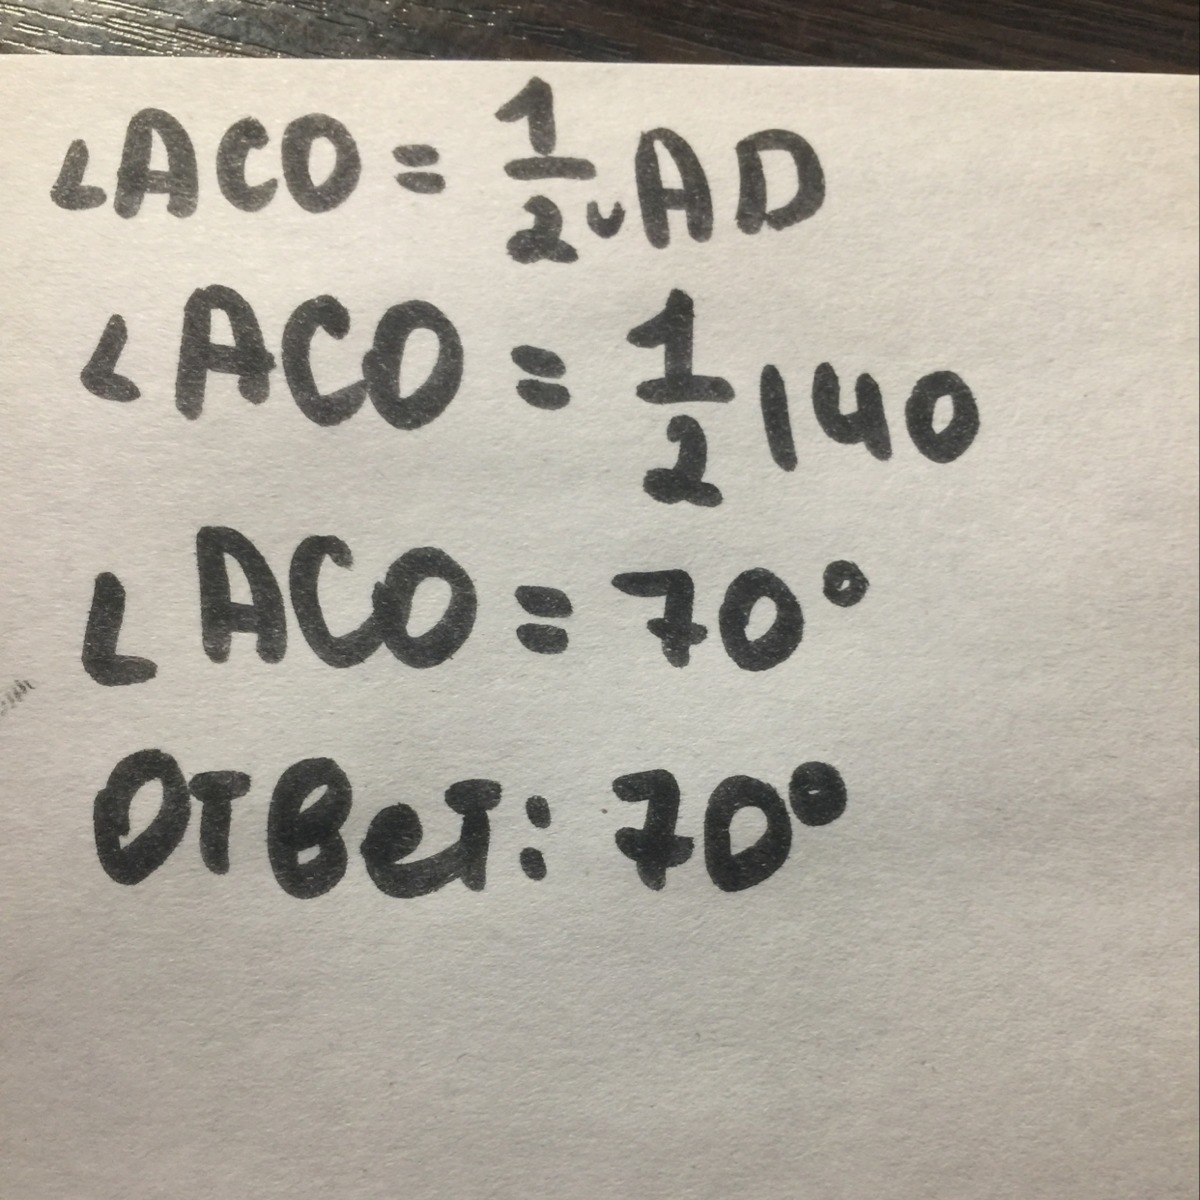 ∠ACO = 1/2 ◡AD
∠ACO = 1/2 140
∠ACO = 70°
Ответ: 70°